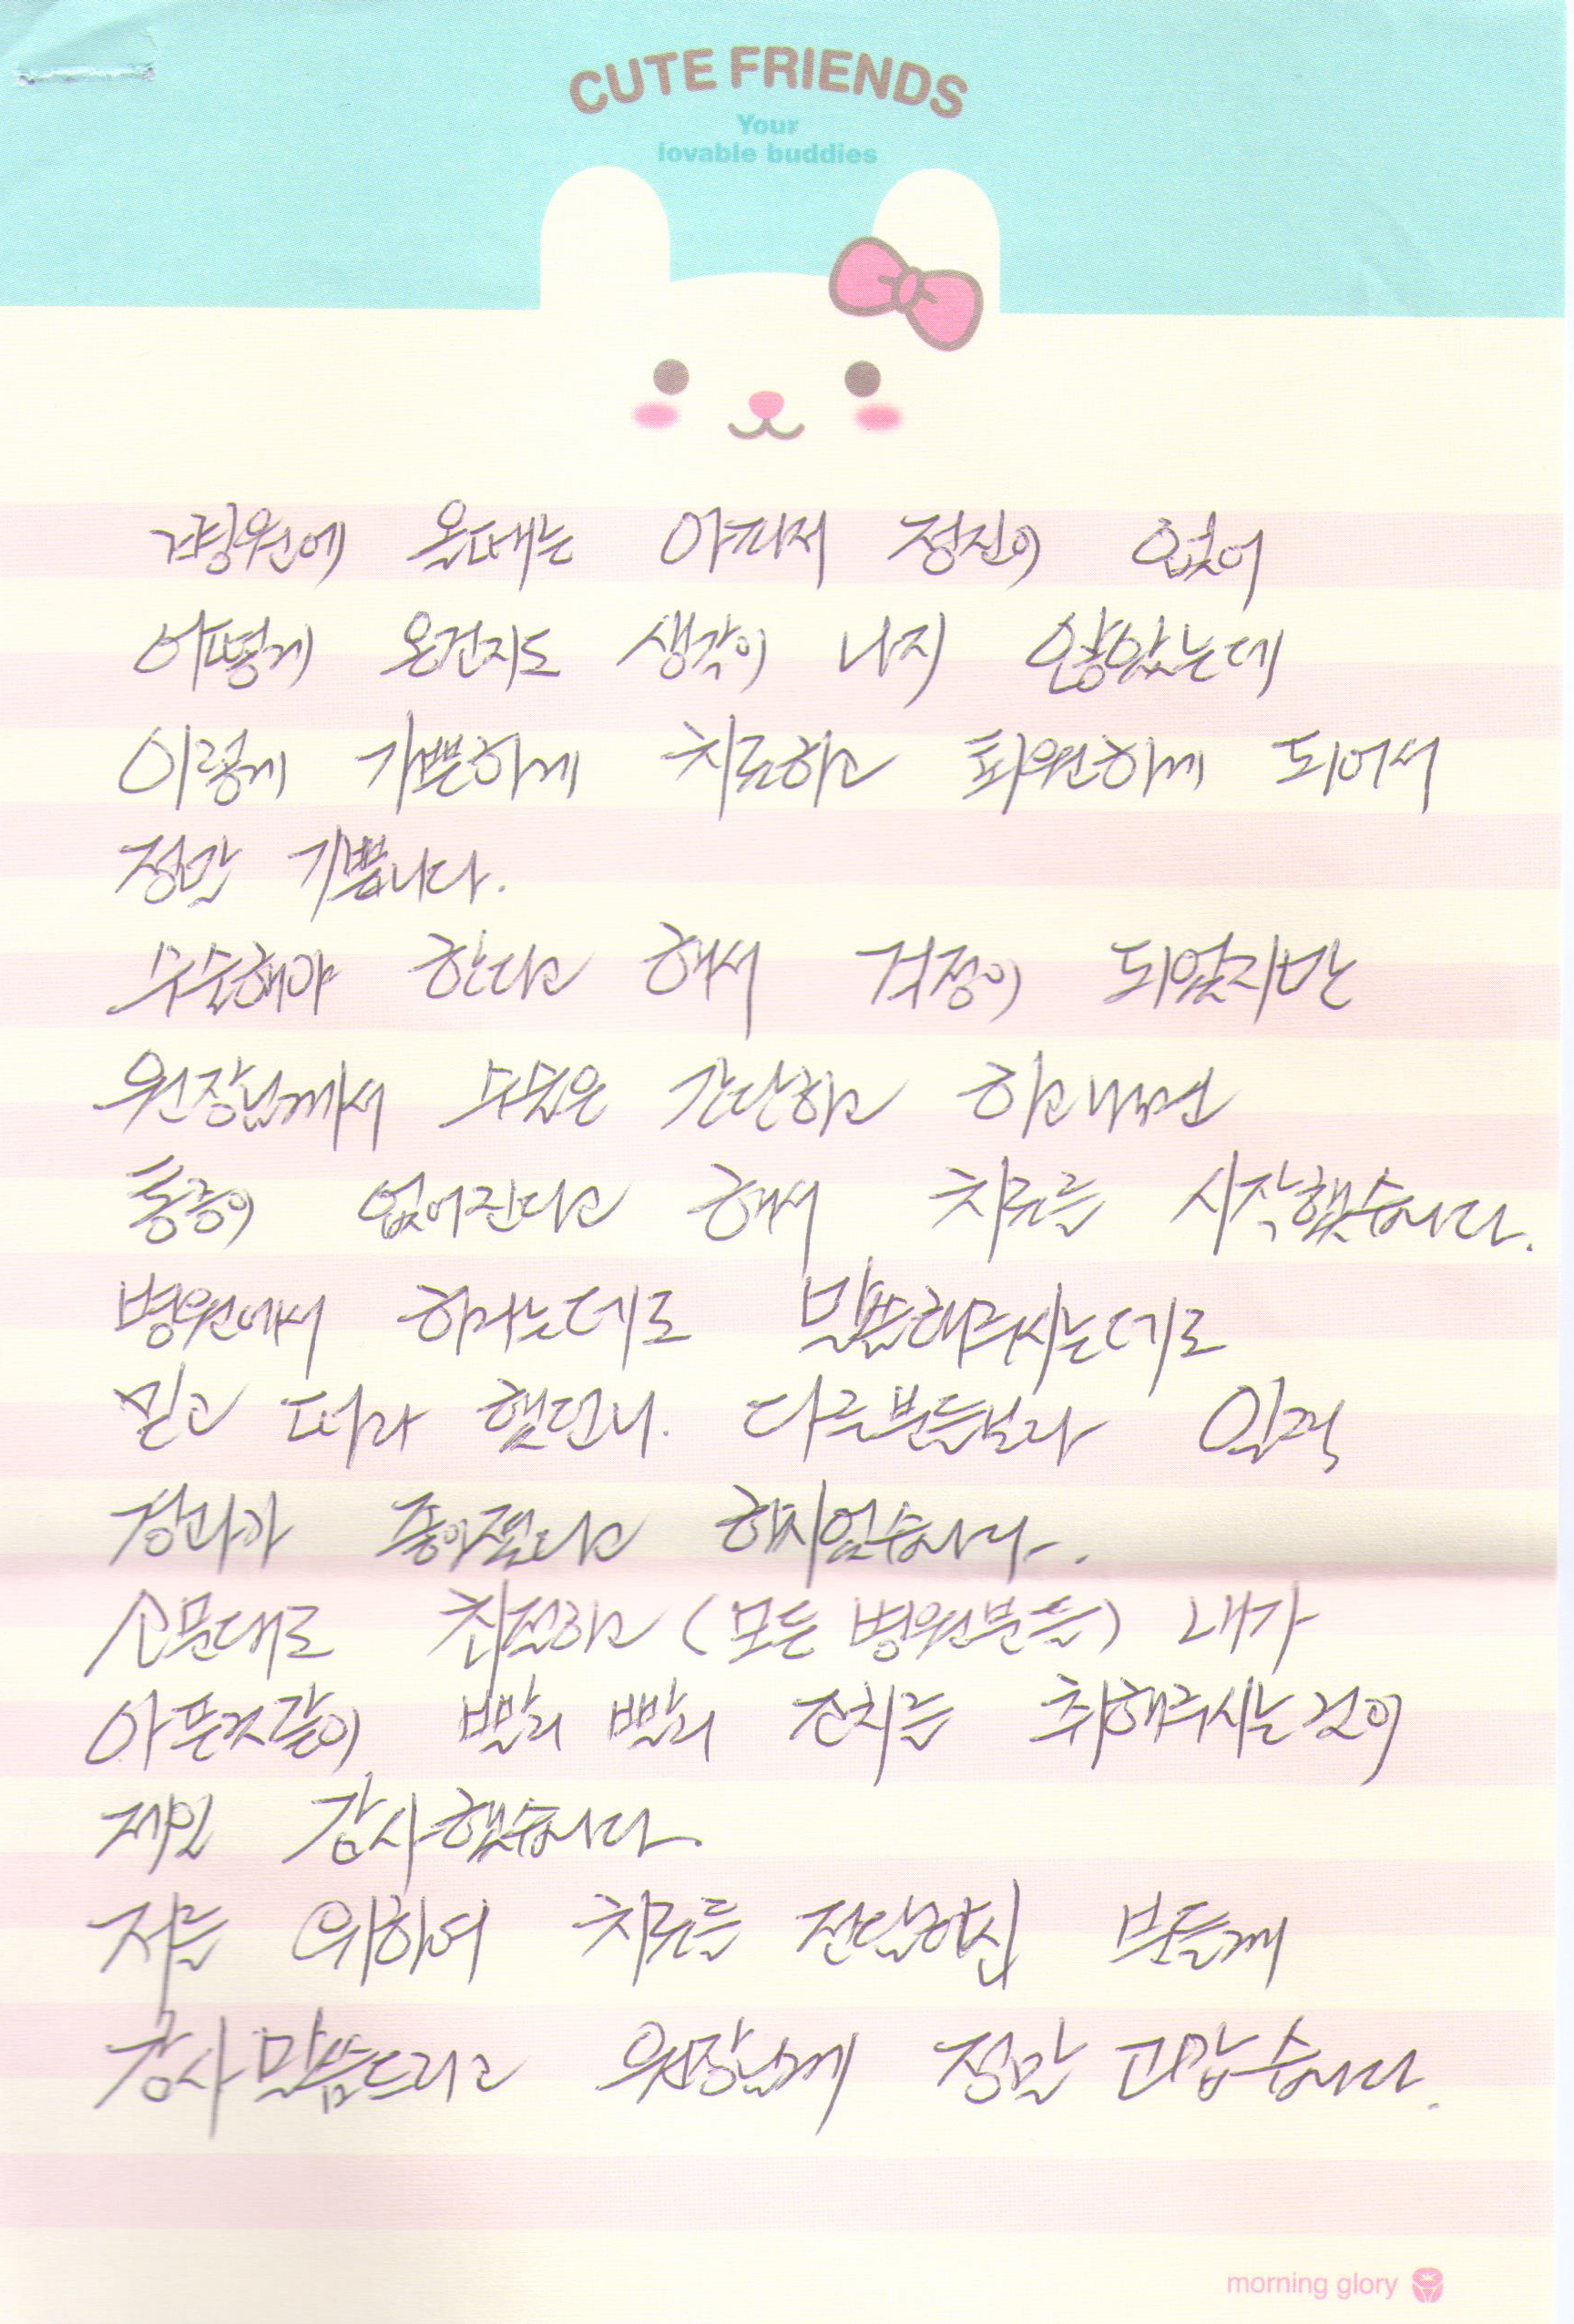 CUTE FRIENDS
Your
lovable buddies
병원에 올때는 아파서 정신이 없어
어떻게 온건지도 생각이 나지 않았는데
이렇게 가뿐하게 치료하고 퇴원하게 되어서
정말 기쁩니다.
수술해야 한다고 해서 걱정이 되었지만
원장님께서 수술은 간단하고 하고나면
통증이 없어진다고 해서 치료를 시작했습니다.
병원에서 하라는데로 말씀해주시는데로
믿고 따라 했던니. 다른분들보다 일찍
경과가 좋아졌다고 하시었습니다.
소문대로 친절하고 (모든 병원분들) 내가
아픈것같이 빨리 빨리 조치를 취해주시는것이
제일 감사했습니다.
저를 위하여 치료를 전담하신 분들께
감사말씀드리고 원장님께 정말 고맙습니다.
morning glory